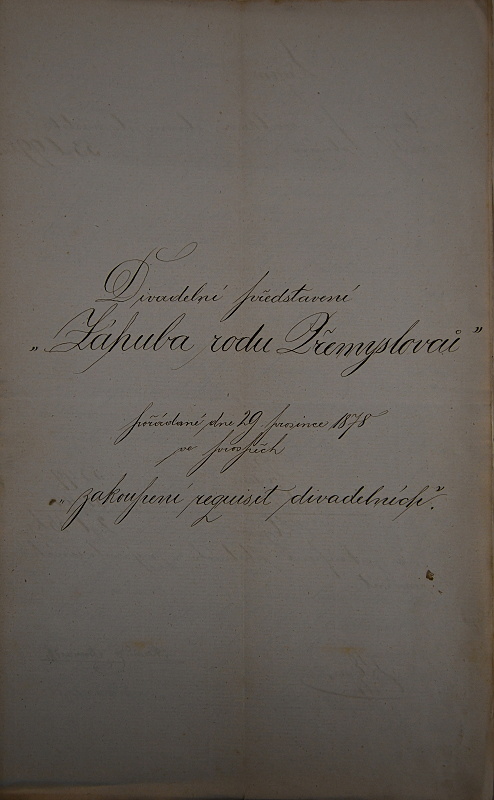 Divadelní představení
„Záhuba rodu Přemyslovců"
pořádané dne 29. prosince 1878
ve prospěch
„zakoupení requisit divadelních".